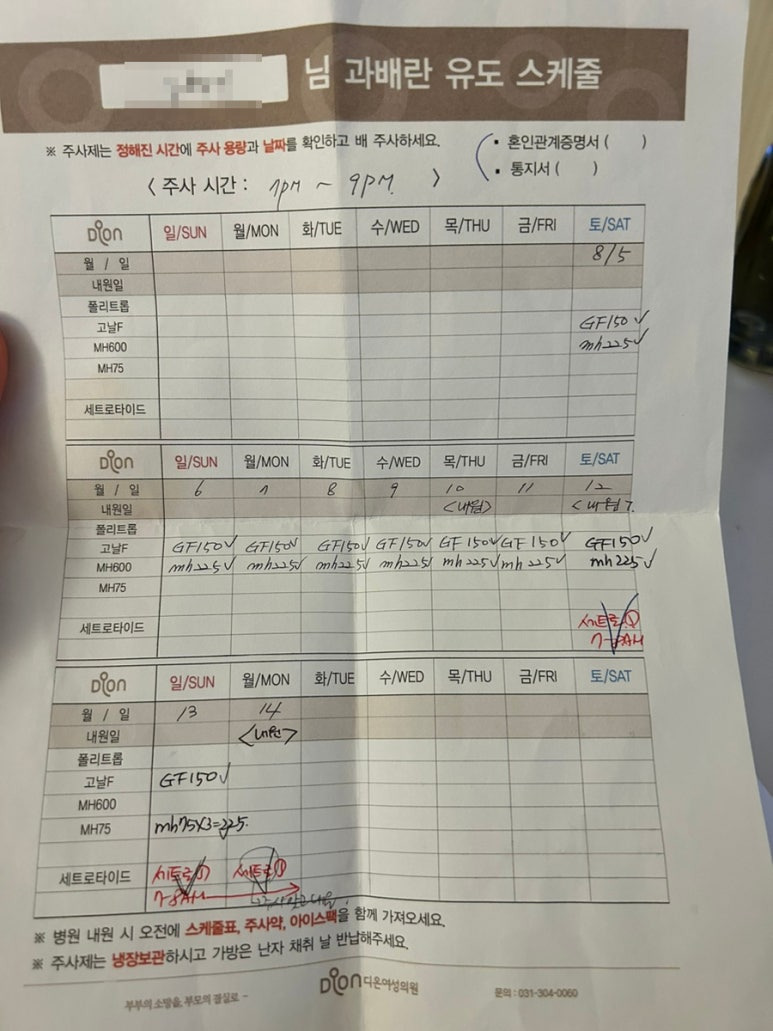 님 과배란 유도 스케줄
※ 주사제는 정해진 시간에 주사 용량과 날짜를 확인하고 배 주사하세요.
• 혼인관계증명서 ( )
• 통지서 ( )
< 주사 시간 : 7PM ~ 9PM. >
Dion 일/SUN 월/MON 화/TUE 수/WED 목/THU 금/FRI 토/SAT
월 / 일 8/5
내원일
폴리트롭
고날F GF150 ✓
MH600 mh225 ✓
MH75
세트로타이드
Dion 일/SUN 월/MON 화/TUE 수/WED 목/THU 금/FRI 토/SAT
월 / 일 6 7 8 9 10 11 12
내원일 <내원> <내원>
폴리트롭
고날F GF150 ✓ GF150 ✓ GF150 ✓ GF150 ✓ GF150 ✓ GF150 ✓ GF150 ✓
MH600 mh225 ✓ mh225 ✓ mh225 ✓ mh225 ✓ mh225 ✓ mh225 ✓ mh225 ✓
MH75
세트로타이드 세트로 ①
7-8AM
Dion 일/SUN 월/MON 화/TUE 수/WED 목/THU 금/FRI 토/SAT
월 / 일 13 14
내원일 <내원>
폴리트롭
고날F GF150 ✓
MH600
MH75 mh75X3=225.
세트로타이드 세트로 ① 세트로 ①
7-8AM
※ 병원 내원 시 오전에 스케줄표, 주사약, 아이스팩을 함께 가져오세요.
※ 주사제는 냉장보관하시고 가방은 난자 채취 날 반납해주세요.
부부의 소망을, 부모의 결실로 ~
Dion 디온여성의원
문의 : 031-304-0060